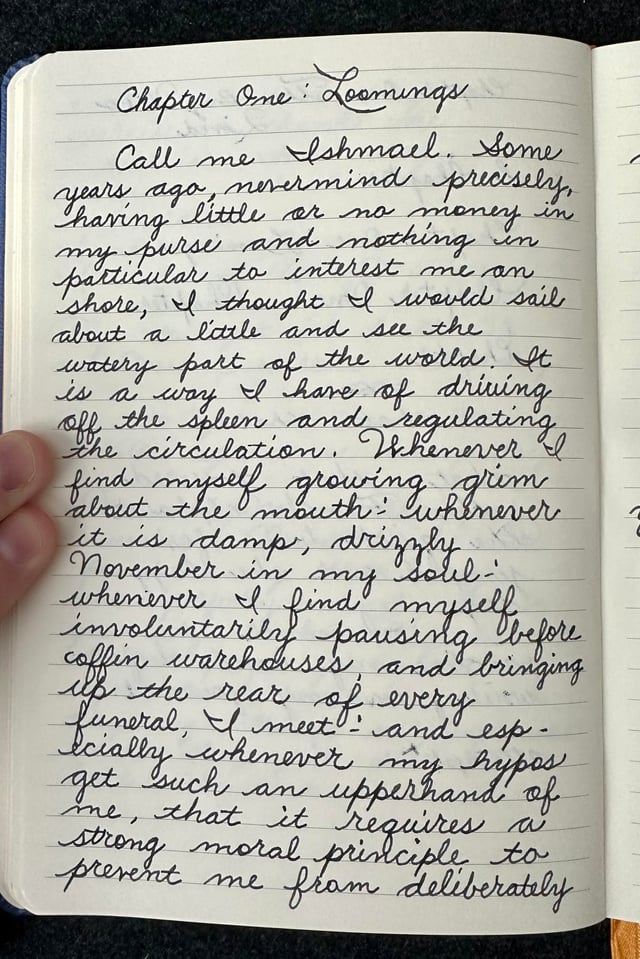 Chapter One: Loomings
Call me Ishmael. Some
years ago, nevermind precisely,
having little or no money in
my purse and nothing in
particular to interest me on
shore, I thought I would sail
about a little and see the
watery part of the world. It
is a way I have of driving
off the spleen and regulating
the circulation. Whenever I
find myself growing grim
about the mouth; whenever
it is damp, drizzly
November in my soul;
whenever I find myself
involuntarily pausing before
coffin warehouses, and bringing
up the rear of every
funeral, I meet; and esp-
ecially whenever my hypos
get such an upperhand of
me, that it requires a
strong moral principle to
prevent me from deliberately